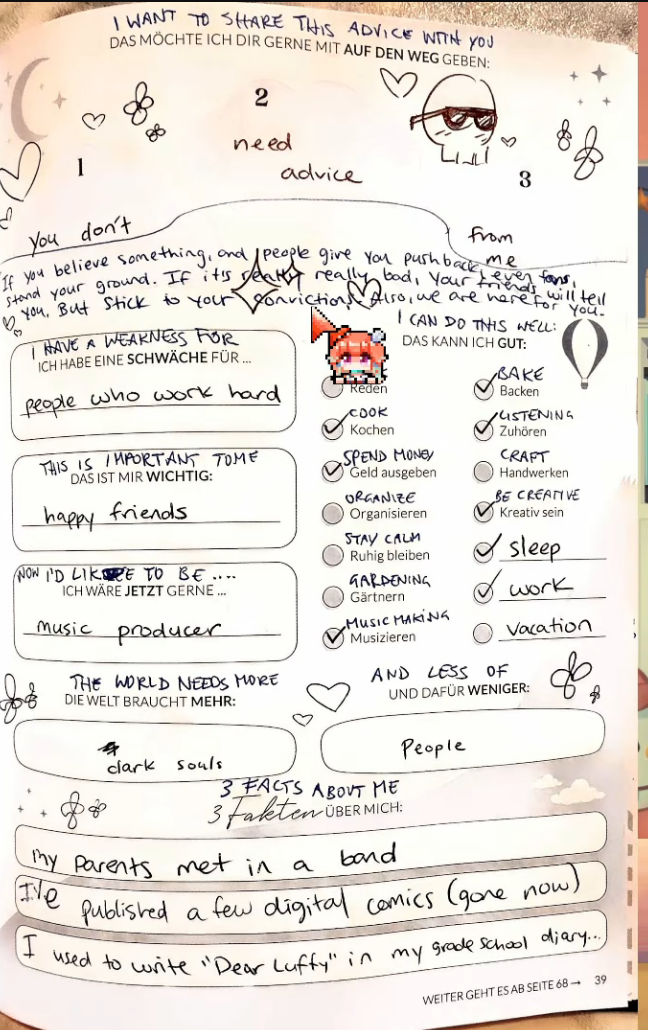 I WANT TO SHARE THIS ADVICE WITH YOU
DAS MÖCHTE ICH DIR GERNE MIT AUF DEN WEG GEBEN:
2
need
advice
1
3
You don't
From
me
If you believe something, and people give you pushback, even fans,
stand your ground. If it's really really bad, your friends will tell
you. But stick to your convictions. Also, we are here for you.
I HAVE A WEAKNESS FOR
ICH HABE EINE SCHWÄCHE FÜR ...
people who work hard
THIS IS IMPORTANT TO ME
DAS IST MIR WICHTIG:
happy friends
NOW I'D LIKE TO BE ....
ICH WÄRE JETZT GERNE ...
music producer
I CAN DO THIS WELL:
DAS KANN ICH GUT:
Reden
BAKE
Backen
COOK
Kochen
LISTENING
Zuhören
SPEND MONEY
Geld ausgeben
CRAFT
Handwerken
ORGANIZE
Organisieren
BE CREATIVE
Kreativ sein
STAY CALM
Ruhig bleiben
sleep
GARDENING
Gärtnern
work
MUSIC MAKING
Musizieren
vacation
THE WORLD NEEDS MORE
DIE WELT BRAUCHT MEHR:
dark souls
AND LESS OF
UND DAFÜR WENIGER:
People
3 FACTS ABOUT ME
3 Fakten ÜBER MICH:
My Parents met in a band
I've published a few digital comics (gone now)
I used to write "Dear Luffy" in my grade school diary...
WEITER GEHT ES AB SEITE 68→ 39